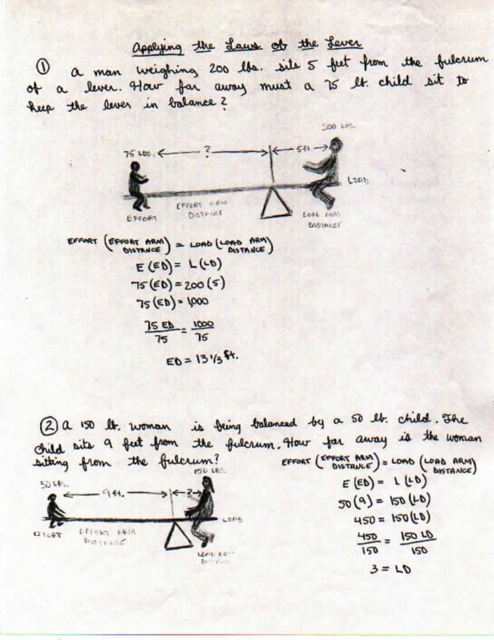 Applying the Laws of the Lever
① A man weighing 200 lbs. sits 5 feet from the fulcrum
of a lever. How far away must a 75 lb. child sit to
keep the lever in balance?
200 LBS.
75 LBS. ? 5 ft.
LOAD
EFFORT EFFORT ARM DISTANCE LOAD ARM DISTANCE
EFFORT (EFFORT ARM DISTANCE) = LOAD (LOAD ARM DISTANCE)
E (ED) = L (LD)
75 (ED) = 200 (5)
75 (ED) = 1000
75 ED / 75 = 1000 / 75
ED = 13 1/3 ft.
② A 150 lb. woman is being balanced by a 50 lb. child. The
child sits 9 feet from the fulcrum. How far away is the woman
sitting from the fulcrum?
150 LBS.
50 LBS. 9 ft. ?
LOAD
EFFORT EFFORT ARM DISTANCE
LOAD ARM DISTANCE
EFFORT (EFFORT ARM DISTANCE) = LOAD (LOAD ARM DISTANCE)
E (ED) = L (LD)
50 (9) = 150 (LD)
450 = 150 (LD)
450 / 150 = 150 LD / 150
3 = LD